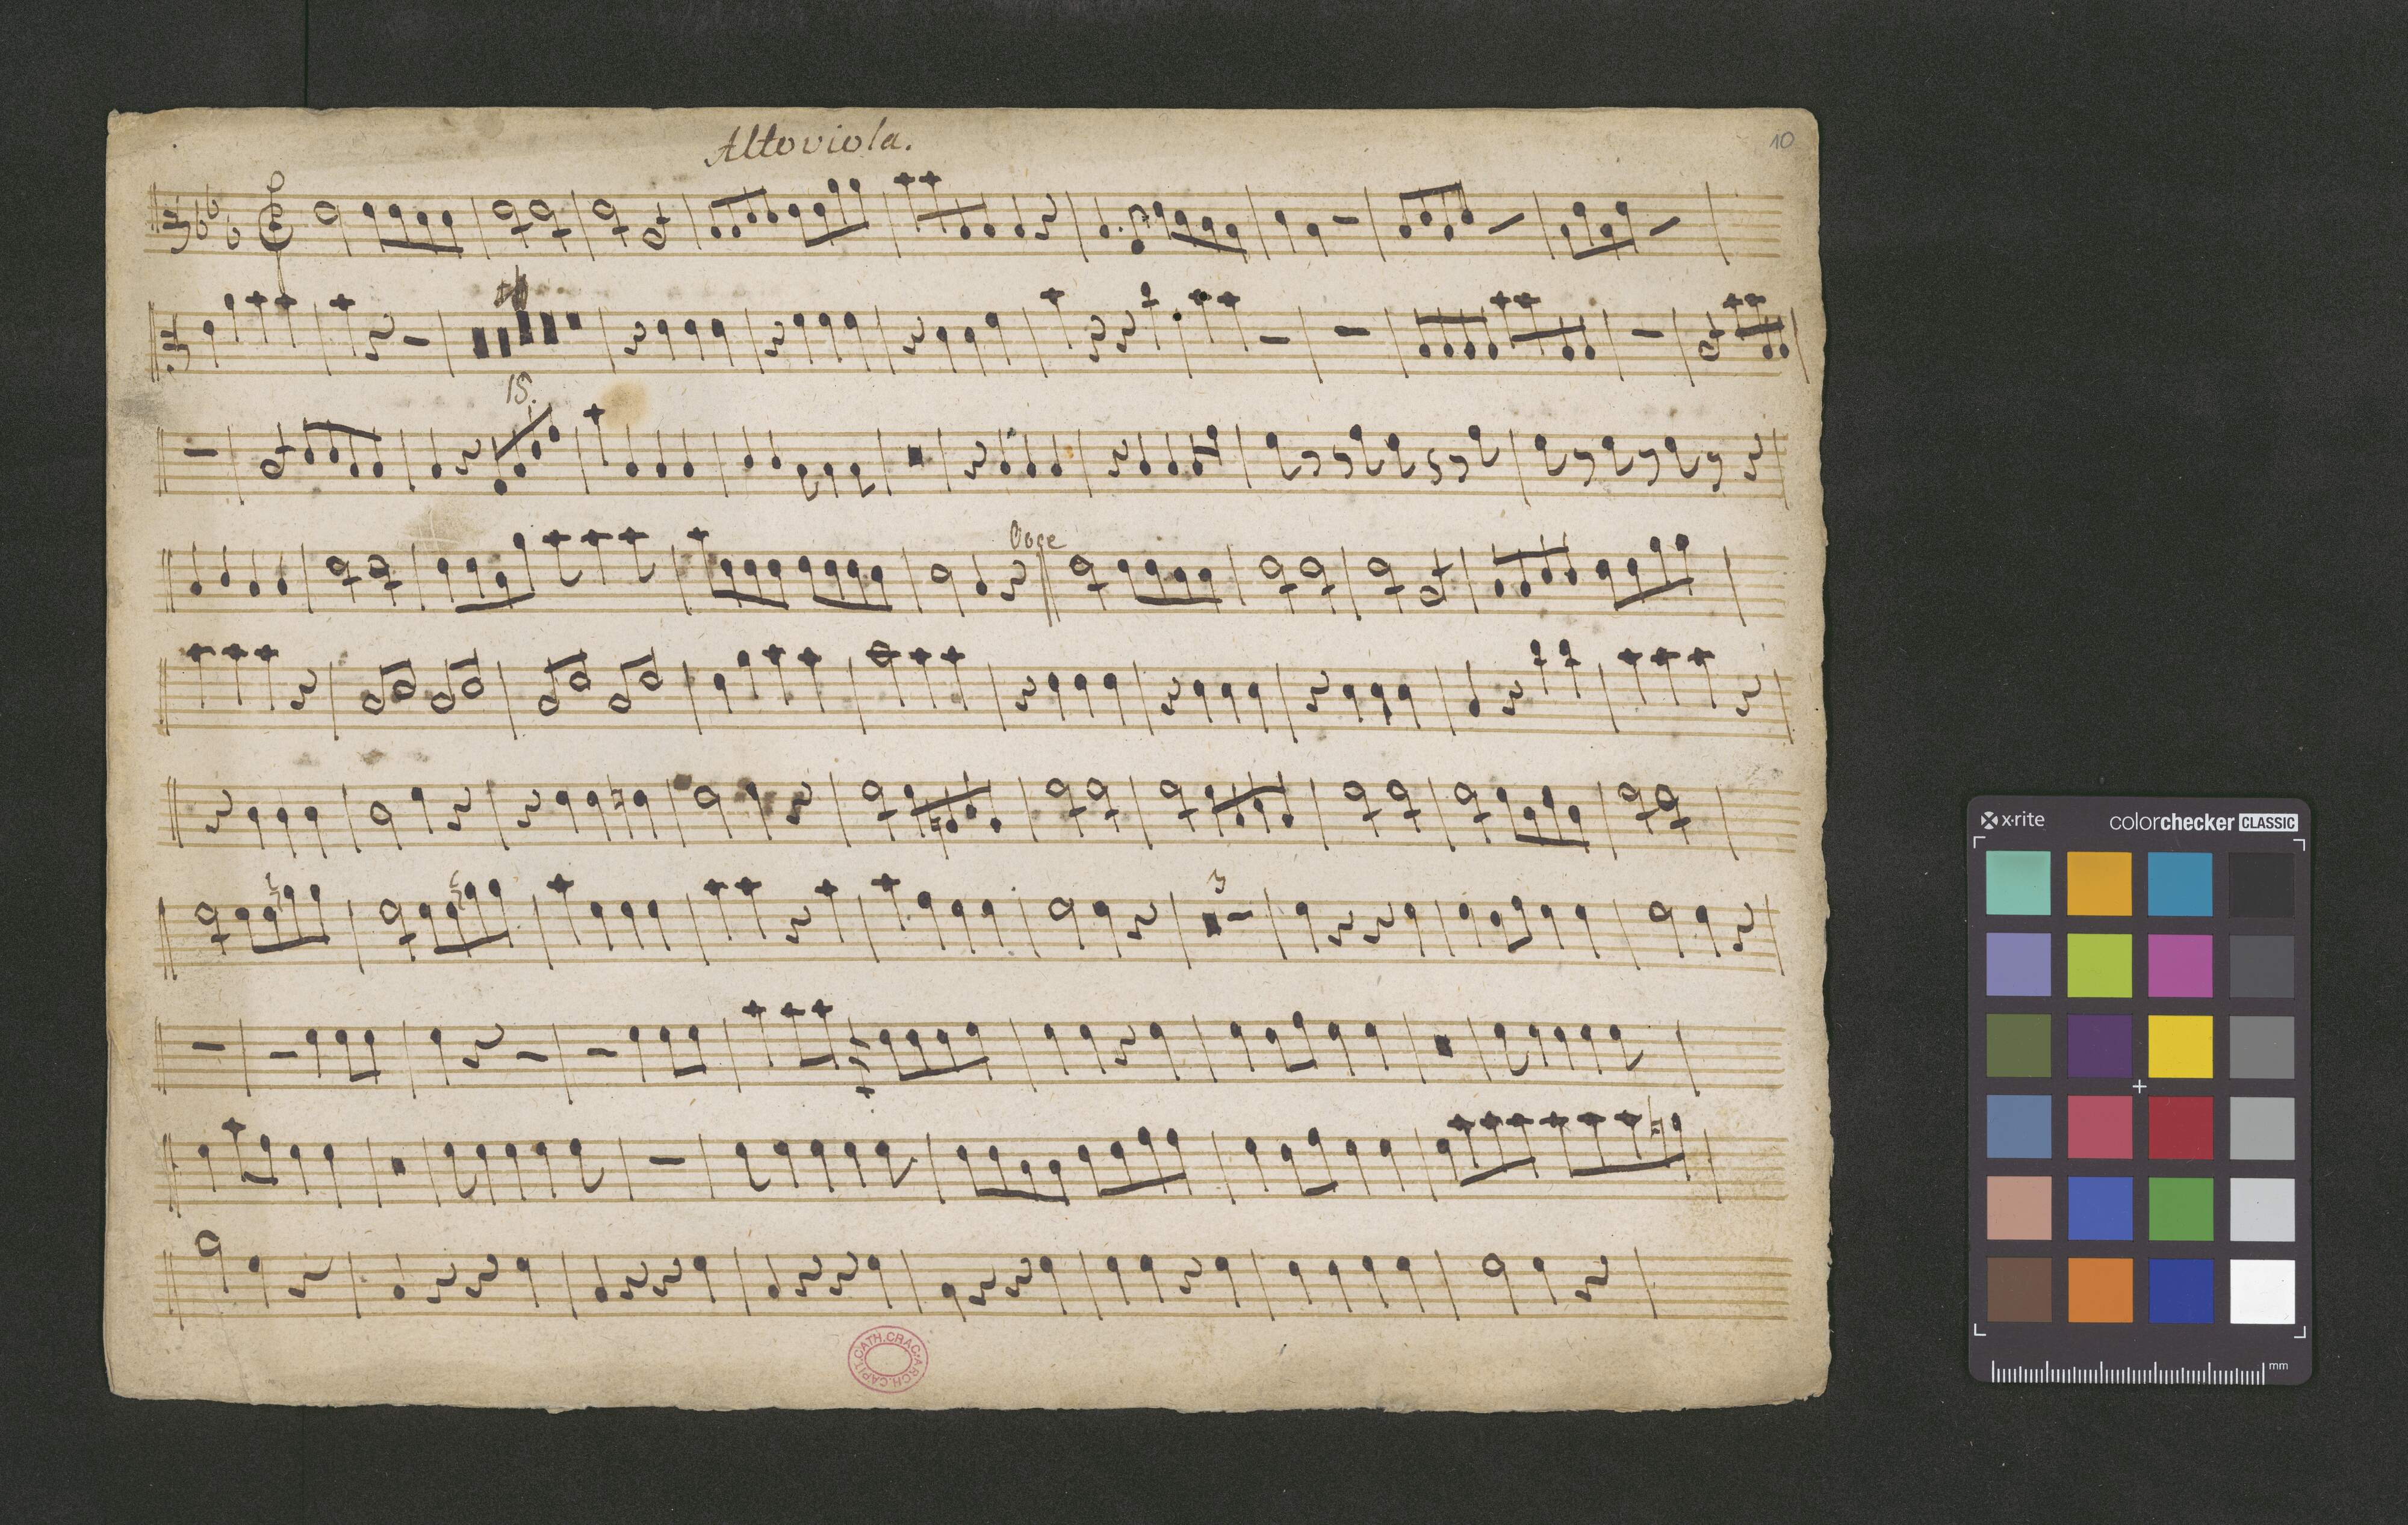 Altoviola.
10
15.
Voce
3
CAPIT.CATH.CRAC.ARCH.
x·rite
colorchecker CLASSIC
mm